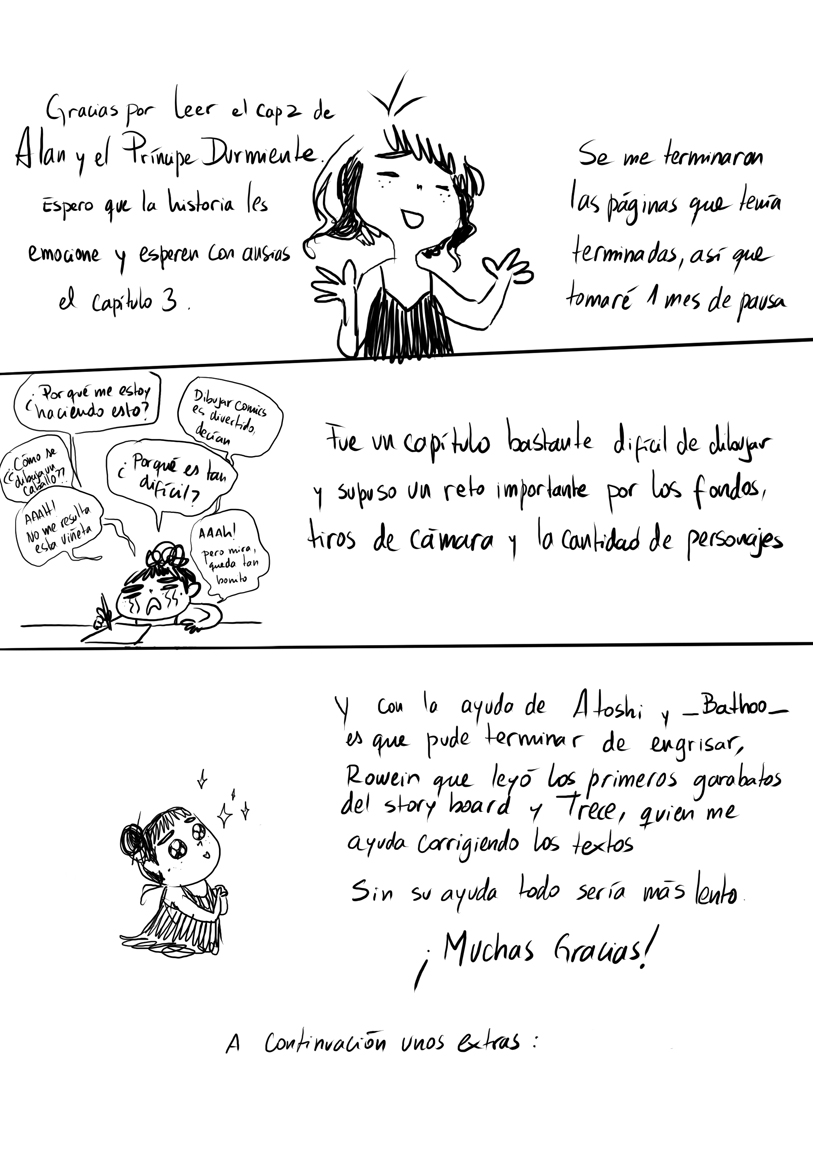 Gracias por leer el cap 2 de
Alan y el Príncipe Durmiente.
Espero que la historia les
emocione y esperen con ansias
el capítulo 3.
Se me terminaron
las páginas que tenía
terminadas, así que
tomaré 1 mes de pausa
¿Por qué me estoy
haciendo esto?
Dibujar comics
es divertido,
decían
¿¿Cómo se
dibuja un
caballo??
¿Por qué es tan
difícil?
AAAH!
No me resulta
esta viñeta
AAAh!
pero mira,
queda tan
bonito
Fue un capítulo bastante difícil de dibujar
y supuso un reto importante por los fondos,
tiros de cámara y la cantidad de personajes
Y con la ayuda de Atoshi y _Bathoo_
es que pude terminar de engrisar,
Rowein que leyó los primeros garabatos
del story board y Trece, quien me
ayuda corrigiendo los textos
Sin su ayuda todo sería más lento.
¡Muchas Gracias!
A continuación unos extras: